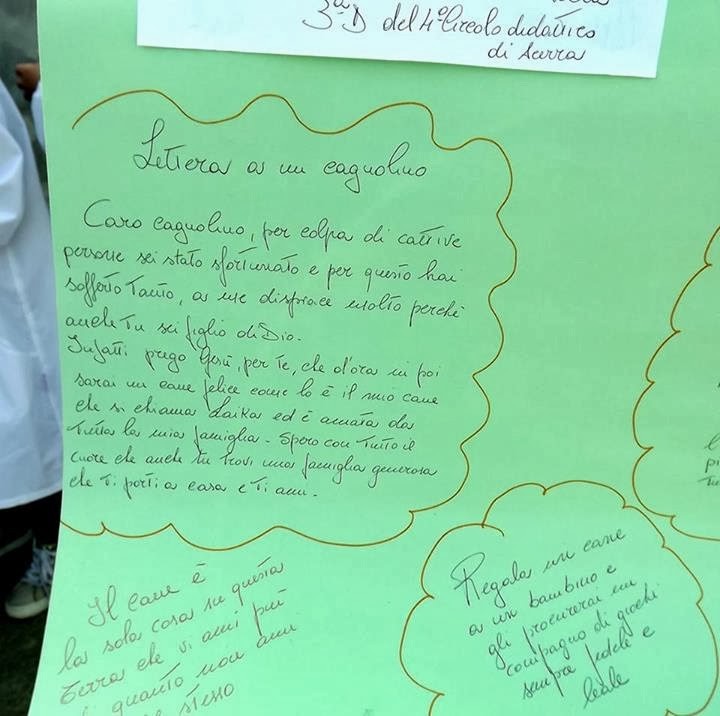 3ª D del 4º Circolo didattico
di Serra
Lettera a un cagnolino
Caro cagnolino, per colpa di cattive
persone sei stato sfortunato e per questo hai
sofferto tanto, a me dispiace molto perché
anche tu sei figlio di Dio.
Infatti prego Gesù, per te, che d'ora in poi
sarai un cane felice come lo è il mio cane
che si chiama Laika ed è amata da
tutta la mia famiglia. Spero con tutto il
cuore che anche tu trovi una famiglia generosa
che ti porti a casa e ti ami.
Il cane è
la sola cosa su questa
terra che vi ami più
di quanto non ami
se stesso
Regala un cane
a un bambino e
gli procurerai un
compagno di giochi
sempre fedele e
leale